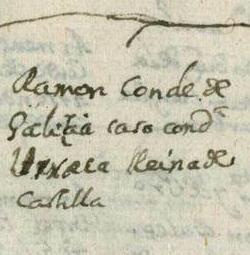 Ramon Conde de
Galiçia caso cond^a
Urraca Reina de
Castilla